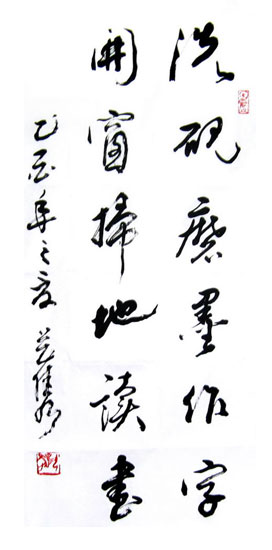 洗硯磨墨作字
開窗掃地讀書
乙酉年之夏